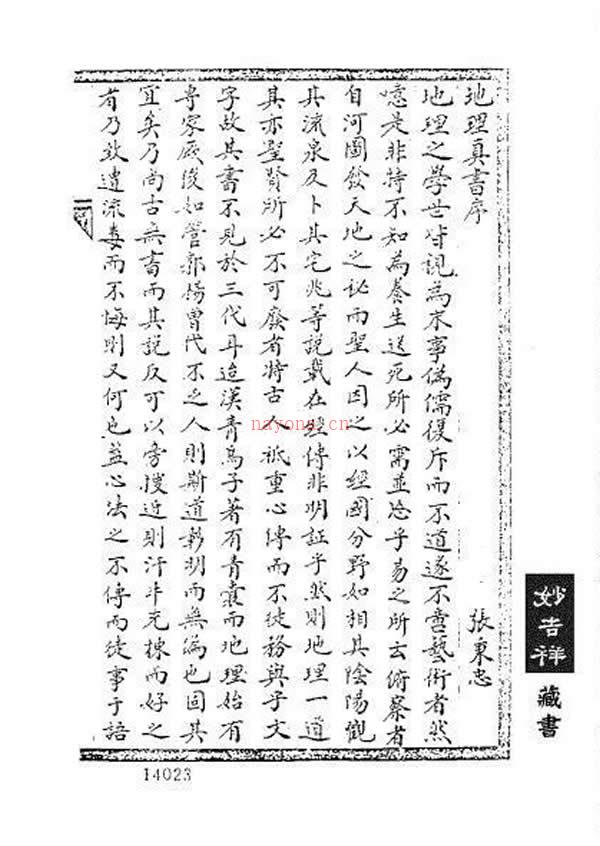 地理真書序
張秉忠
地理之學世皆視為末事偽儒復斥而不道遂不啻藝術者然
噫是非特不知為養生送死所必需並忘乎易之所云俯察者
自河圖發天地之秘而聖人因之以經國分野如相其陰陽觀
其流泉及卜其宅兆等說載在經傳非明証乎然則地理一道
其亦聖賢所必不可廢者特古人祇重心傳而不徒務與乎文
字故其書不見於三代耳迨漢青烏子著有青囊而地理始有
專家厥後如管郭楊曾代不乏人則斯道彰明而無偽也固其
宜矣乃尚古無書而其說反可以旁搜近則汗牛充棟而好之
者乃致遺流毒而不悔則又何也蓋心法之不傳而徒事于語
nayona.cn
妙吉祥
藏書
14023